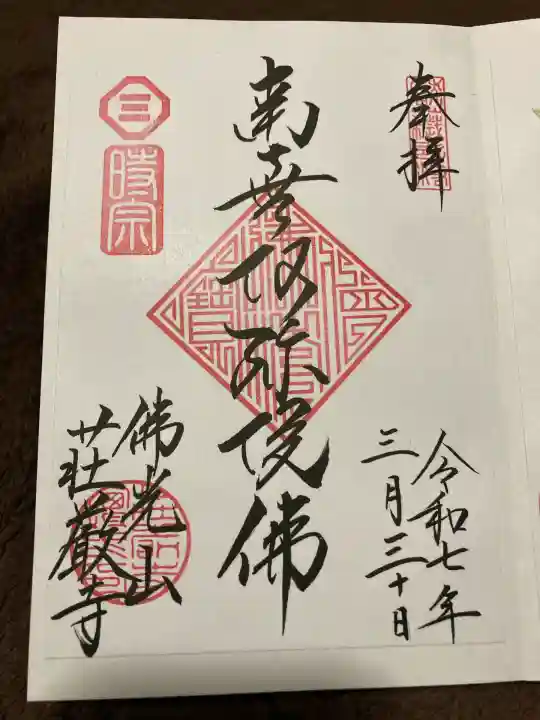 奉拝
令和七年
三月三十日
南無阿弥陀佛
三
時宗
佛光山
荘厳寺